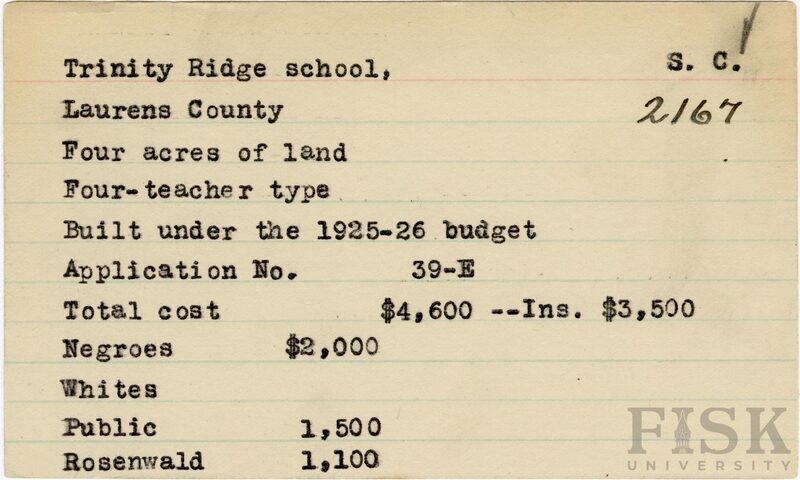 Trinity Ridge school, S. C.
Laurens County 2167
Four acres of land
Four-teacher type
Built under the 1925-26 budget
Application No. 39-E
Total cost $4,600 --Ins. $3,500
Negroes $2,000
Whites
Public 1,500
Rosenwald 1,100
FISK
UNIVERSITY